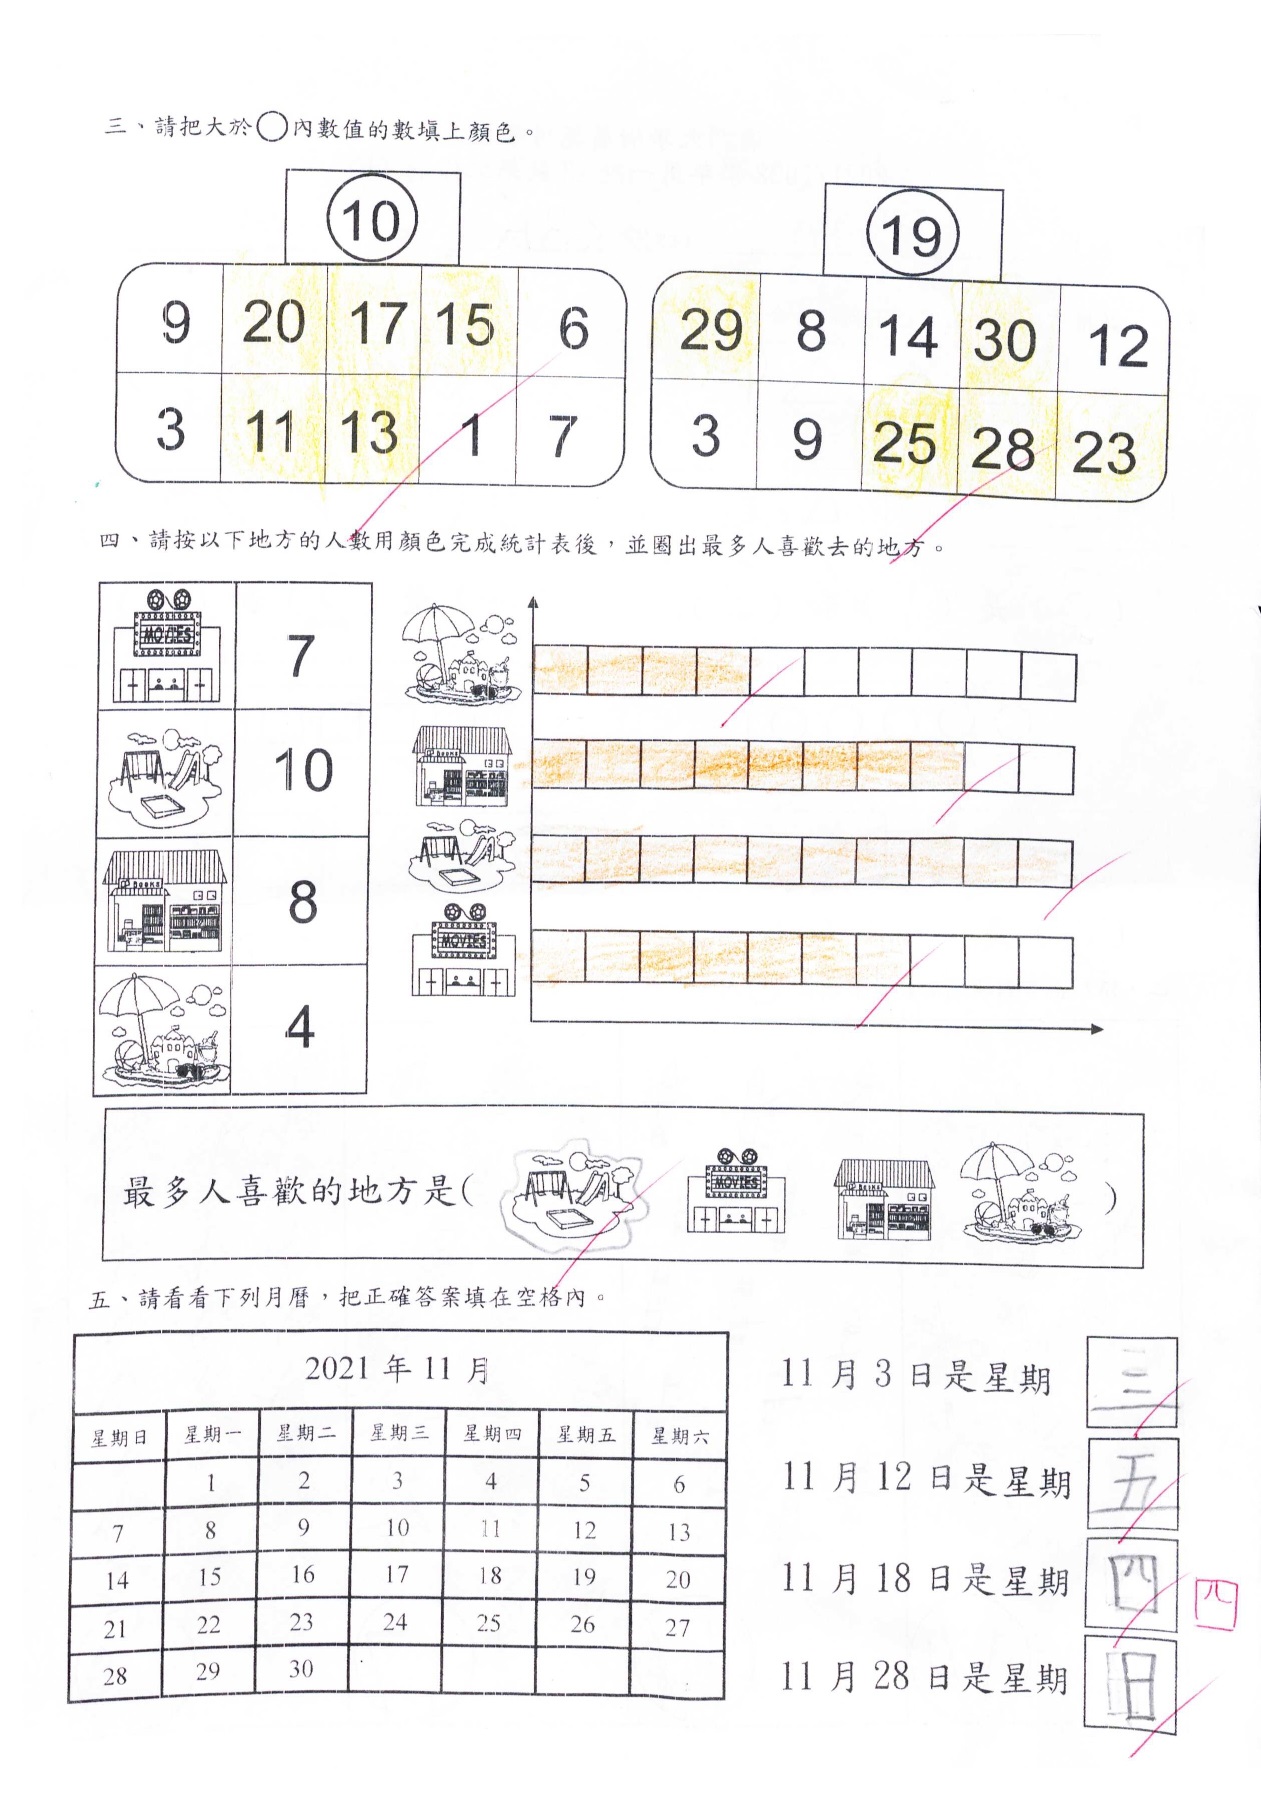 三、請把大於○內數值的數填上顏色。
10 19
9 20 17 15 6 29 8 14 30 12
3 11 13 1 7 3 9 25 28 23
四、請按以下地方的人數用顏色完成統計表後，並圈出最多人喜歡去的地方。
MOVIES 7
10
BOOKS 8
4
BOOKS
MOVIES
最多人喜歡的地方是( MOVIES BOOKS )
五、請看看下列月曆，把正確答案填在空格內。
2021 年 11 月
星期日 星期一 星期二 星期三 星期四 星期五 星期六
1 2 3 4 5 6
7 8 9 10 11 12 13
14 15 16 17 18 19 20
21 22 23 24 25 26 27
28 29 30
11 月 3 日是星期 三
11 月 12 日是星期 五
11 月 18 日是星期 四 四
11 月 28 日是星期 日